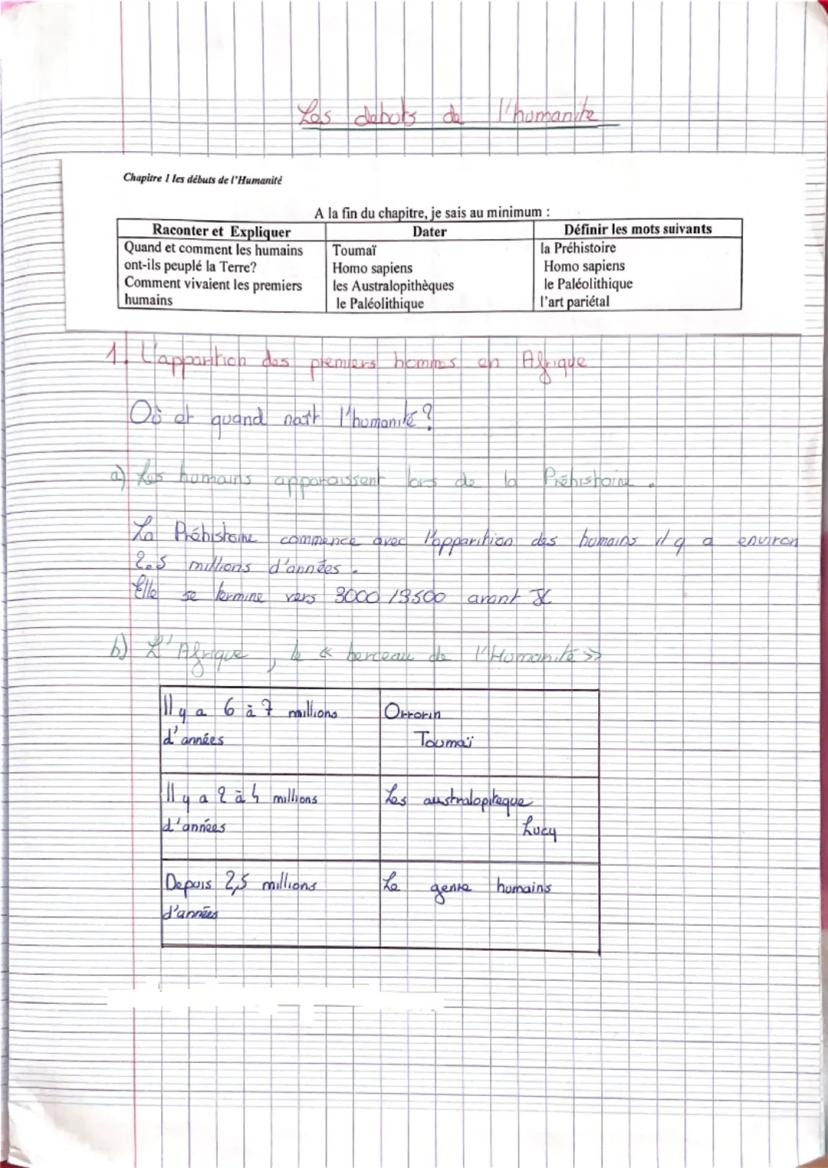 Les debuts de l'humanite
Chapitre 1 les débuts de l'Humanité
A la fin du chapitre, je sais au minimum :
Raconter et Expliquer Dater Définir les mots suivants
Quand et comment les humains Toumaï la Préhistoire
ont-ils peuplé la Terre? Homo sapiens Homo sapiens
Comment vivaient les premiers les Australopithèques le Paléolithique
humains le Paléolithique l'art pariétal
1. L'apparition des premiers hommes en Afrique
Où et quand naît l'humanité?
a) Les humains apparaissent lors de la Préhistoire.
La Préhistoire commence avec l'apparition des humains il y a environ
2.5 millions d'années.
Elle se termine vers 3000/3500 avant JC
b) L'Afrique, le « berceau de l'Humanité »
Il y a 6 à 7 millions Orrorin
d'années Toumaï
Il y a 2 à 4 millions Les australopiteque
d'années Lucy
Depuis 2,5 millions Le genre humains
d'années